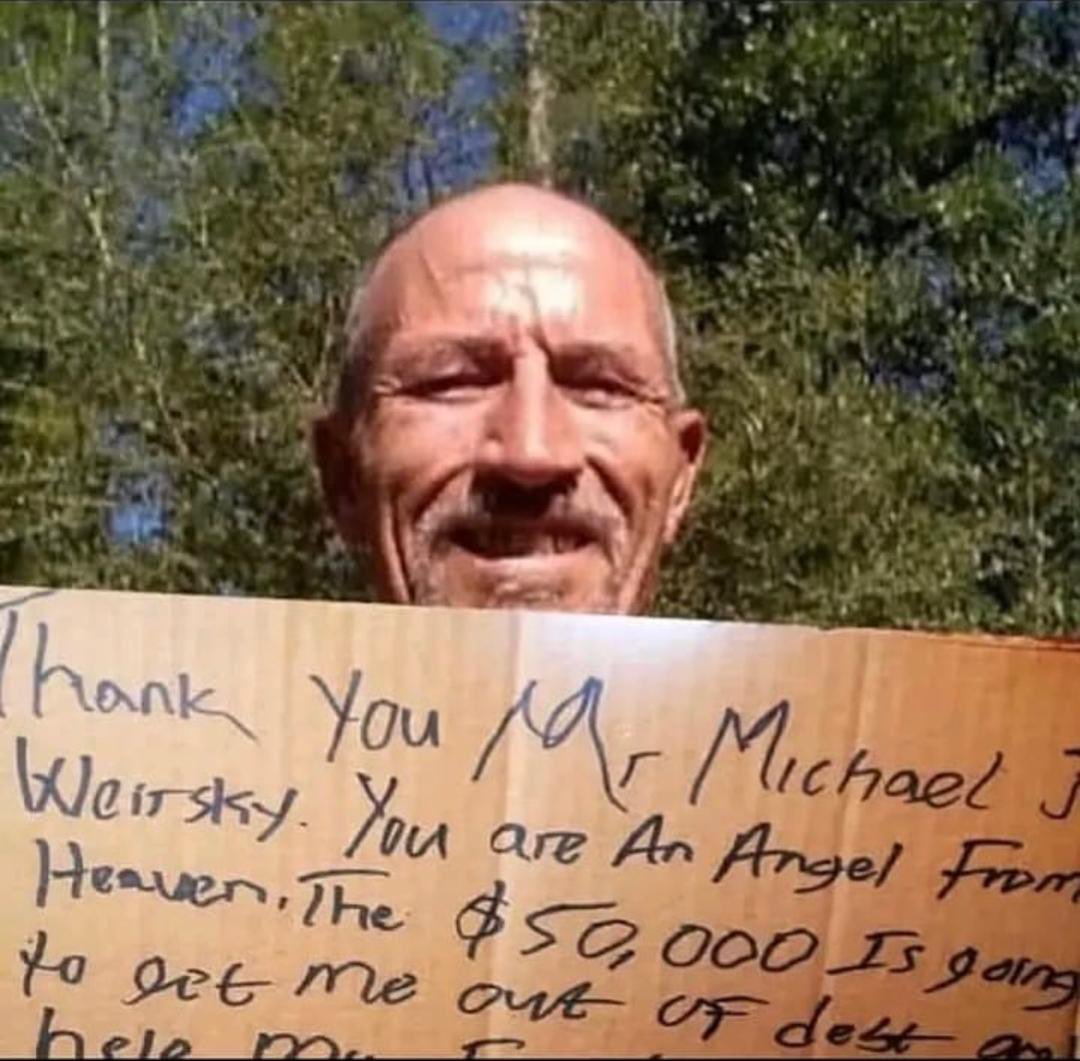 Thank You Mr Michael J
Weirsky. You are An Angel From
Heaven. The $50,000 Is going
to get me out of debt an
help my